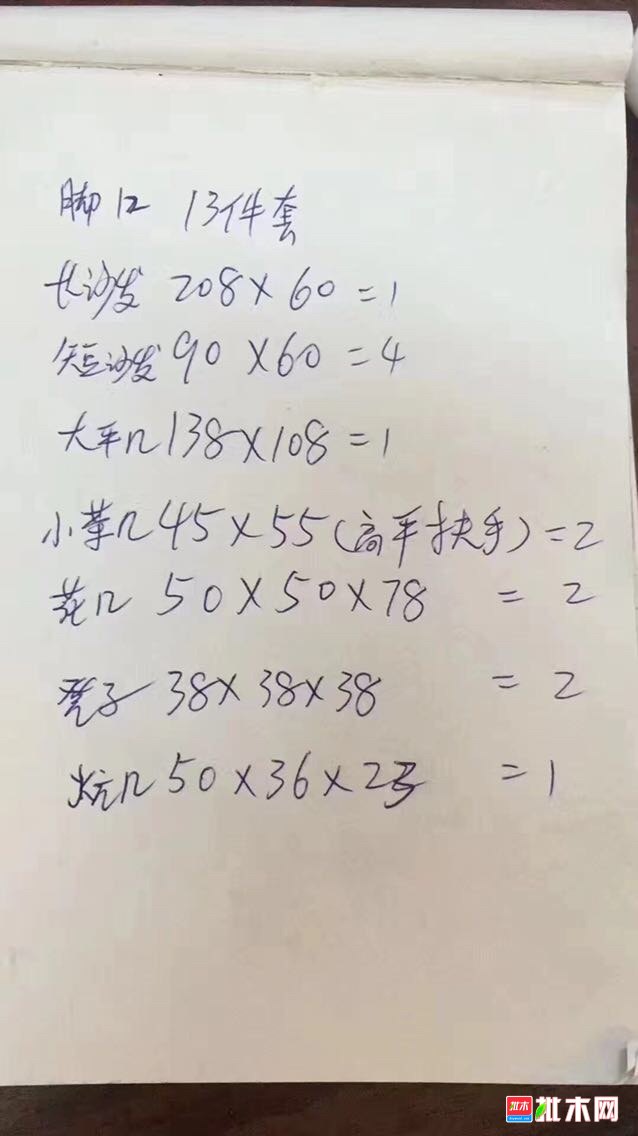 脚12 13件套
长沙发 208×60=1
短沙发 90×60=4
大平几 138×108=1
小茶几 45×55(高平扶手)=2
花几 50×50×78 = 2
凳子 38×38×38 = 2
炕几 50×36×23 = 1
批木 批木网